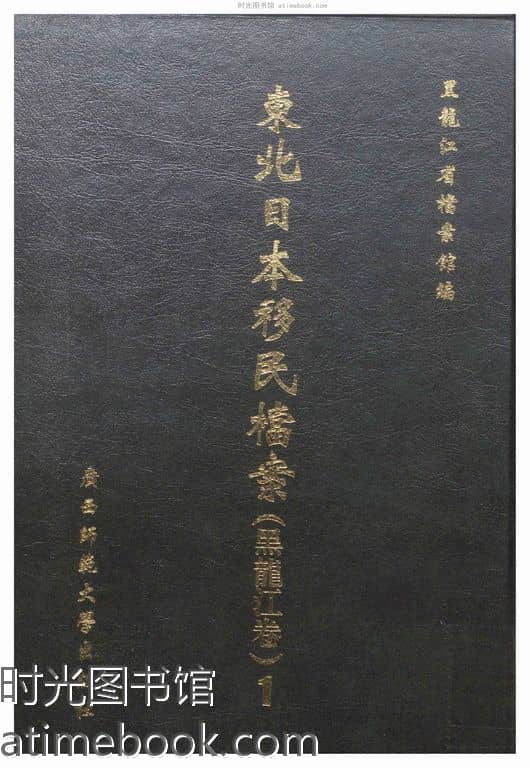 时光图书馆 atimebook.com
黑龍江省檔案館編
東北日本移民檔案(黑龍江卷)1
廣西師範大學出
时光图书馆
atimebook.com